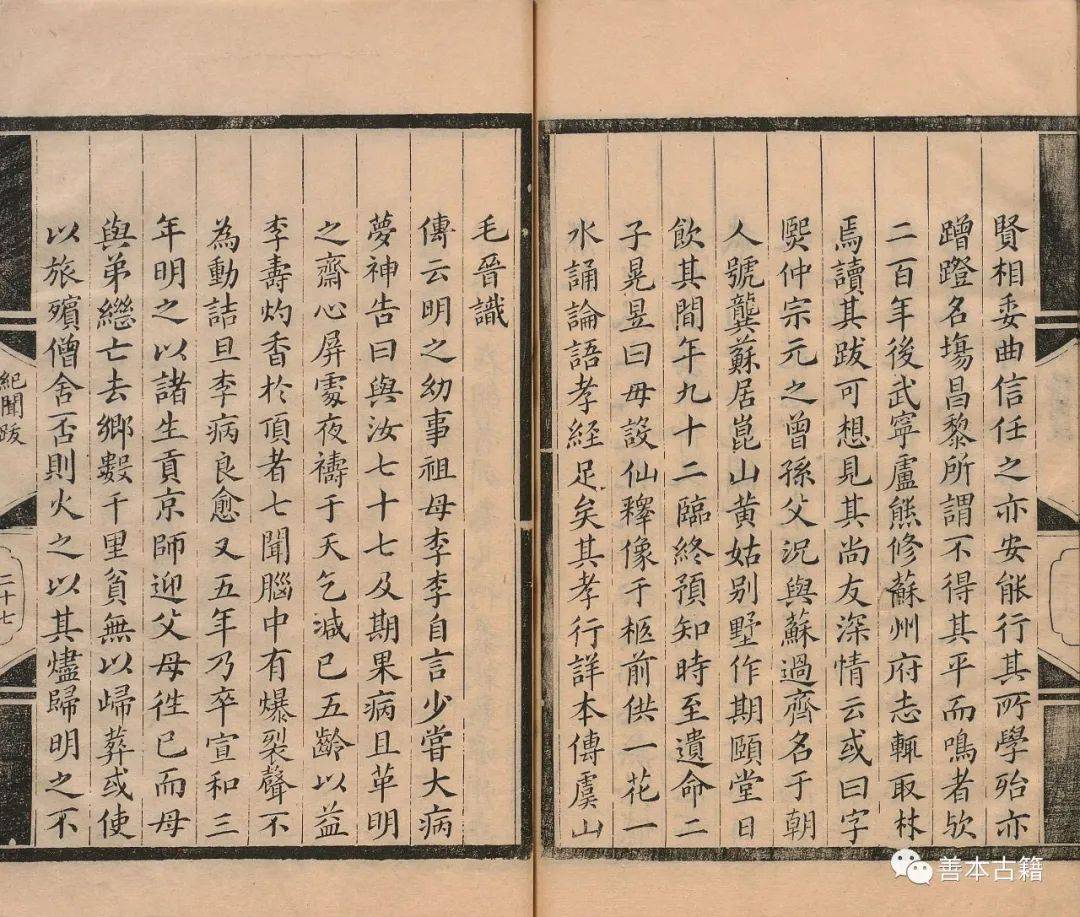 賢相委曲信任之亦安能行其所學殆亦
蹭蹬名塲昌黎所謂不得其平而鳴者欤
二百年後武寧盧熊修蘇州府志輒取林
焉讀其跋可想見其尚友深情云或曰字
熙仲宗元之曾孫父況與蘇過齊名于朝
人號龔蘇居崑山黄姑别墅作期頤堂日
飲其間年九十二臨終預知時至遺命二
子晃昱曰毋設仙釋像于柩前供一花一
水誦論語孝經足矣其孝行詳本傳虞山
毛晉識
傳云明之幼事祖母李李自言少嘗大病
夢神告曰與汝七十七及期果病且革明
之齋心屏處夜禱于天乞減已五齡以益
李壽灼香於頂者七聞腦中有爆裂聲不
為動詰旦李病良愈又五年乃卒宣和三
年明之以諸生貢京師迎父母徃已而母
與弟繼亡去鄉數千里貧無以歸葬或使
以旅殯僧舍否則火之以其燼歸明之不
紀聞跋
二十七
善本古籍